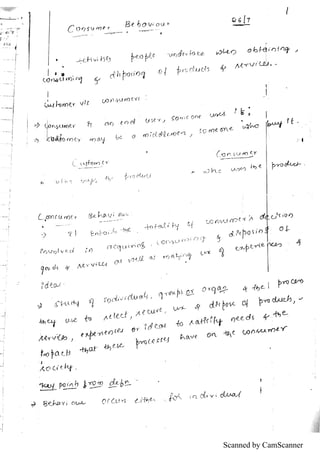 1
Consumer Behaviour
06/7
activities people undertake when obtaining,
consuming & disposing of products & services.
Customer v/s consumer
→ Consumer is an end user, someone who
→ Customer may be a middlemen, someone who buy it.
Customer
Consumer
who buys the product
who uses the product
Consumer Behaviour
→ It the totality of consumer's decision
involved in acquiring, consuming & disposing of
goods & services as well as making use of experiences &
idea.
→ study of individual, groups or & the process
they use to select, secure, use & dispose of products,
services, experiences or ideas to satisfy needs & the
impacts that these processes have on the consumer
society.
Key points from defn
→ Behaviour occurs either for individual
Scanned by CamScanner